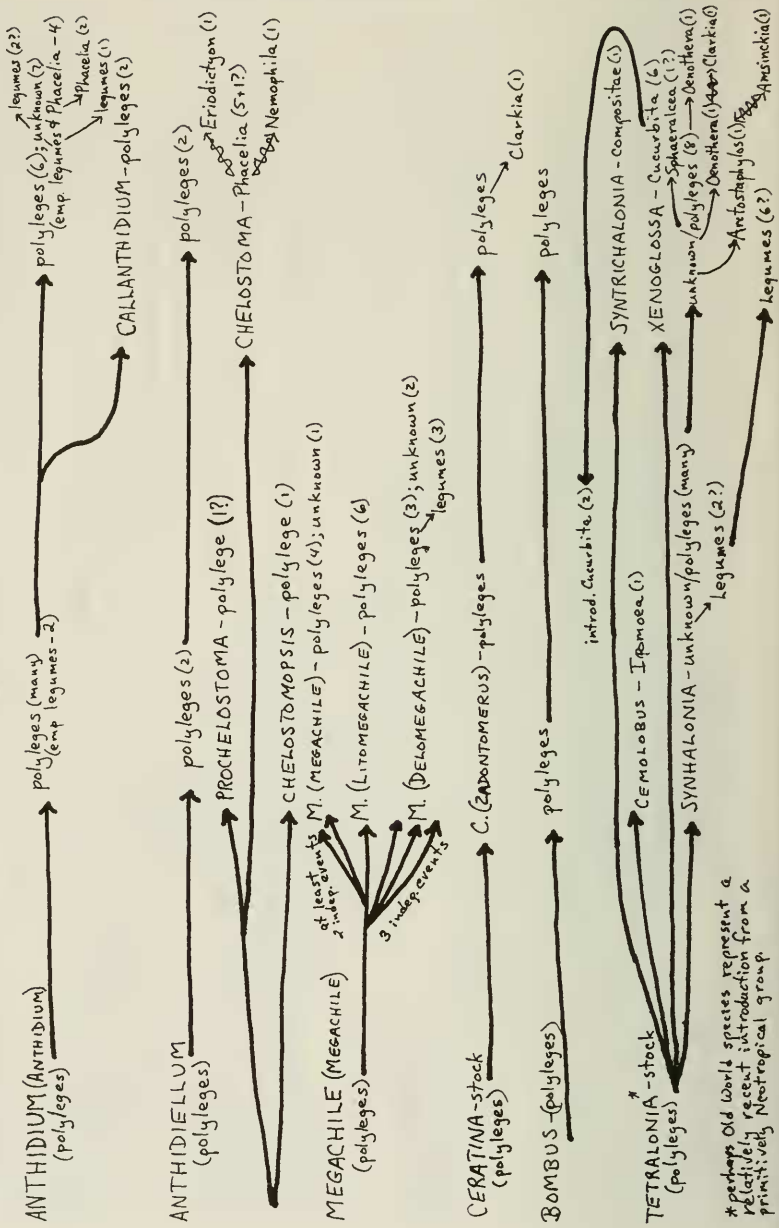 ANTHIDIUM (ANTHIDIUM)
(polyleges)
polyleges (many)
(emp legumes-2)
polyleges (6); unknown (7)
(emp. legumes & Phacelia-4)
legumes (2?)
Phacelia (2)
legumes (1)
CALLANTHIDIUM-polyleges (2)
ANTHIDIELLUM
(polyleges)
polyleges (2)
polyleges (2)
PROCHELOSTOMA - polylege (1?)
Eriodictyon (1)
CHELOSTOMA-Phacelia (5+1?)
Nemophila (1)
CHELOSTOMOPSIS - polylege (1)
MEGACHILE (MEGACHILE)
(polyleges)
at least
2 indep. events
3 indep. events
M. (MEGACHILE) - polyleges (4); unknown (1)
M. (LITOMEGACHILE) - polyleges (6)
M. (DELOMEGACHILE) - polyleges (3); unknown (2)
legumes (3)
CERATINA-stock
(polyleges)
C. (ZADONTOMERUS) - polyleges
polyleges
Clarkia (1)
BOMBUS-(polyleges)
polyleges
polyleges
introd. Cucurbita (2)
TETRALONIA*-stock
(polyleges)
SYNTRICHALONIA-compositae (1)
CEMOLOBUS - Ipomoea (1)
XENOGLOSSA-Cucurbita (6)
Sphaeralcea (1?)
SYNHALONIA-unknown/polyleges (many)
unknown/polyleges (8)
Oenothera (1)
Oenothera (1)
Clarkia (1)
Arctostaphylos (1)
Amsinckia (1)
Legumes (2?)
Legumes (6?)
*perhaps Old World species represent a
relatively recent introduction from a
primitively Neotropical group.